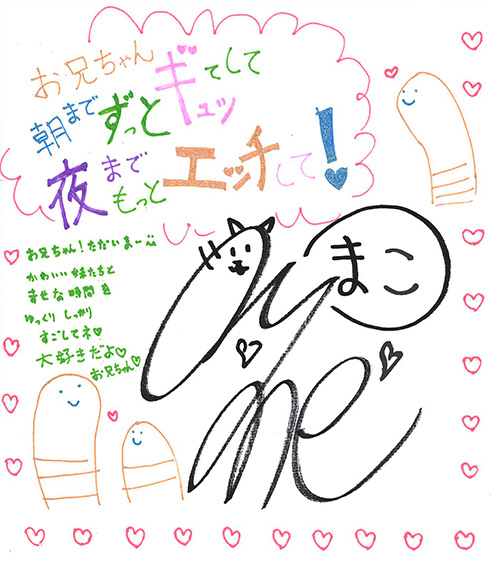 お兄ちゃん
ギュッてして
朝まで
ずっと
夜まで
もっと
エッチして!
お兄ちゃん!ただいまー
かわいい妹たちと
幸せな時間を
ゆっくり しっかり
すごしてネ♡
大好きだよ♡
お兄ちゃん♡
まこ